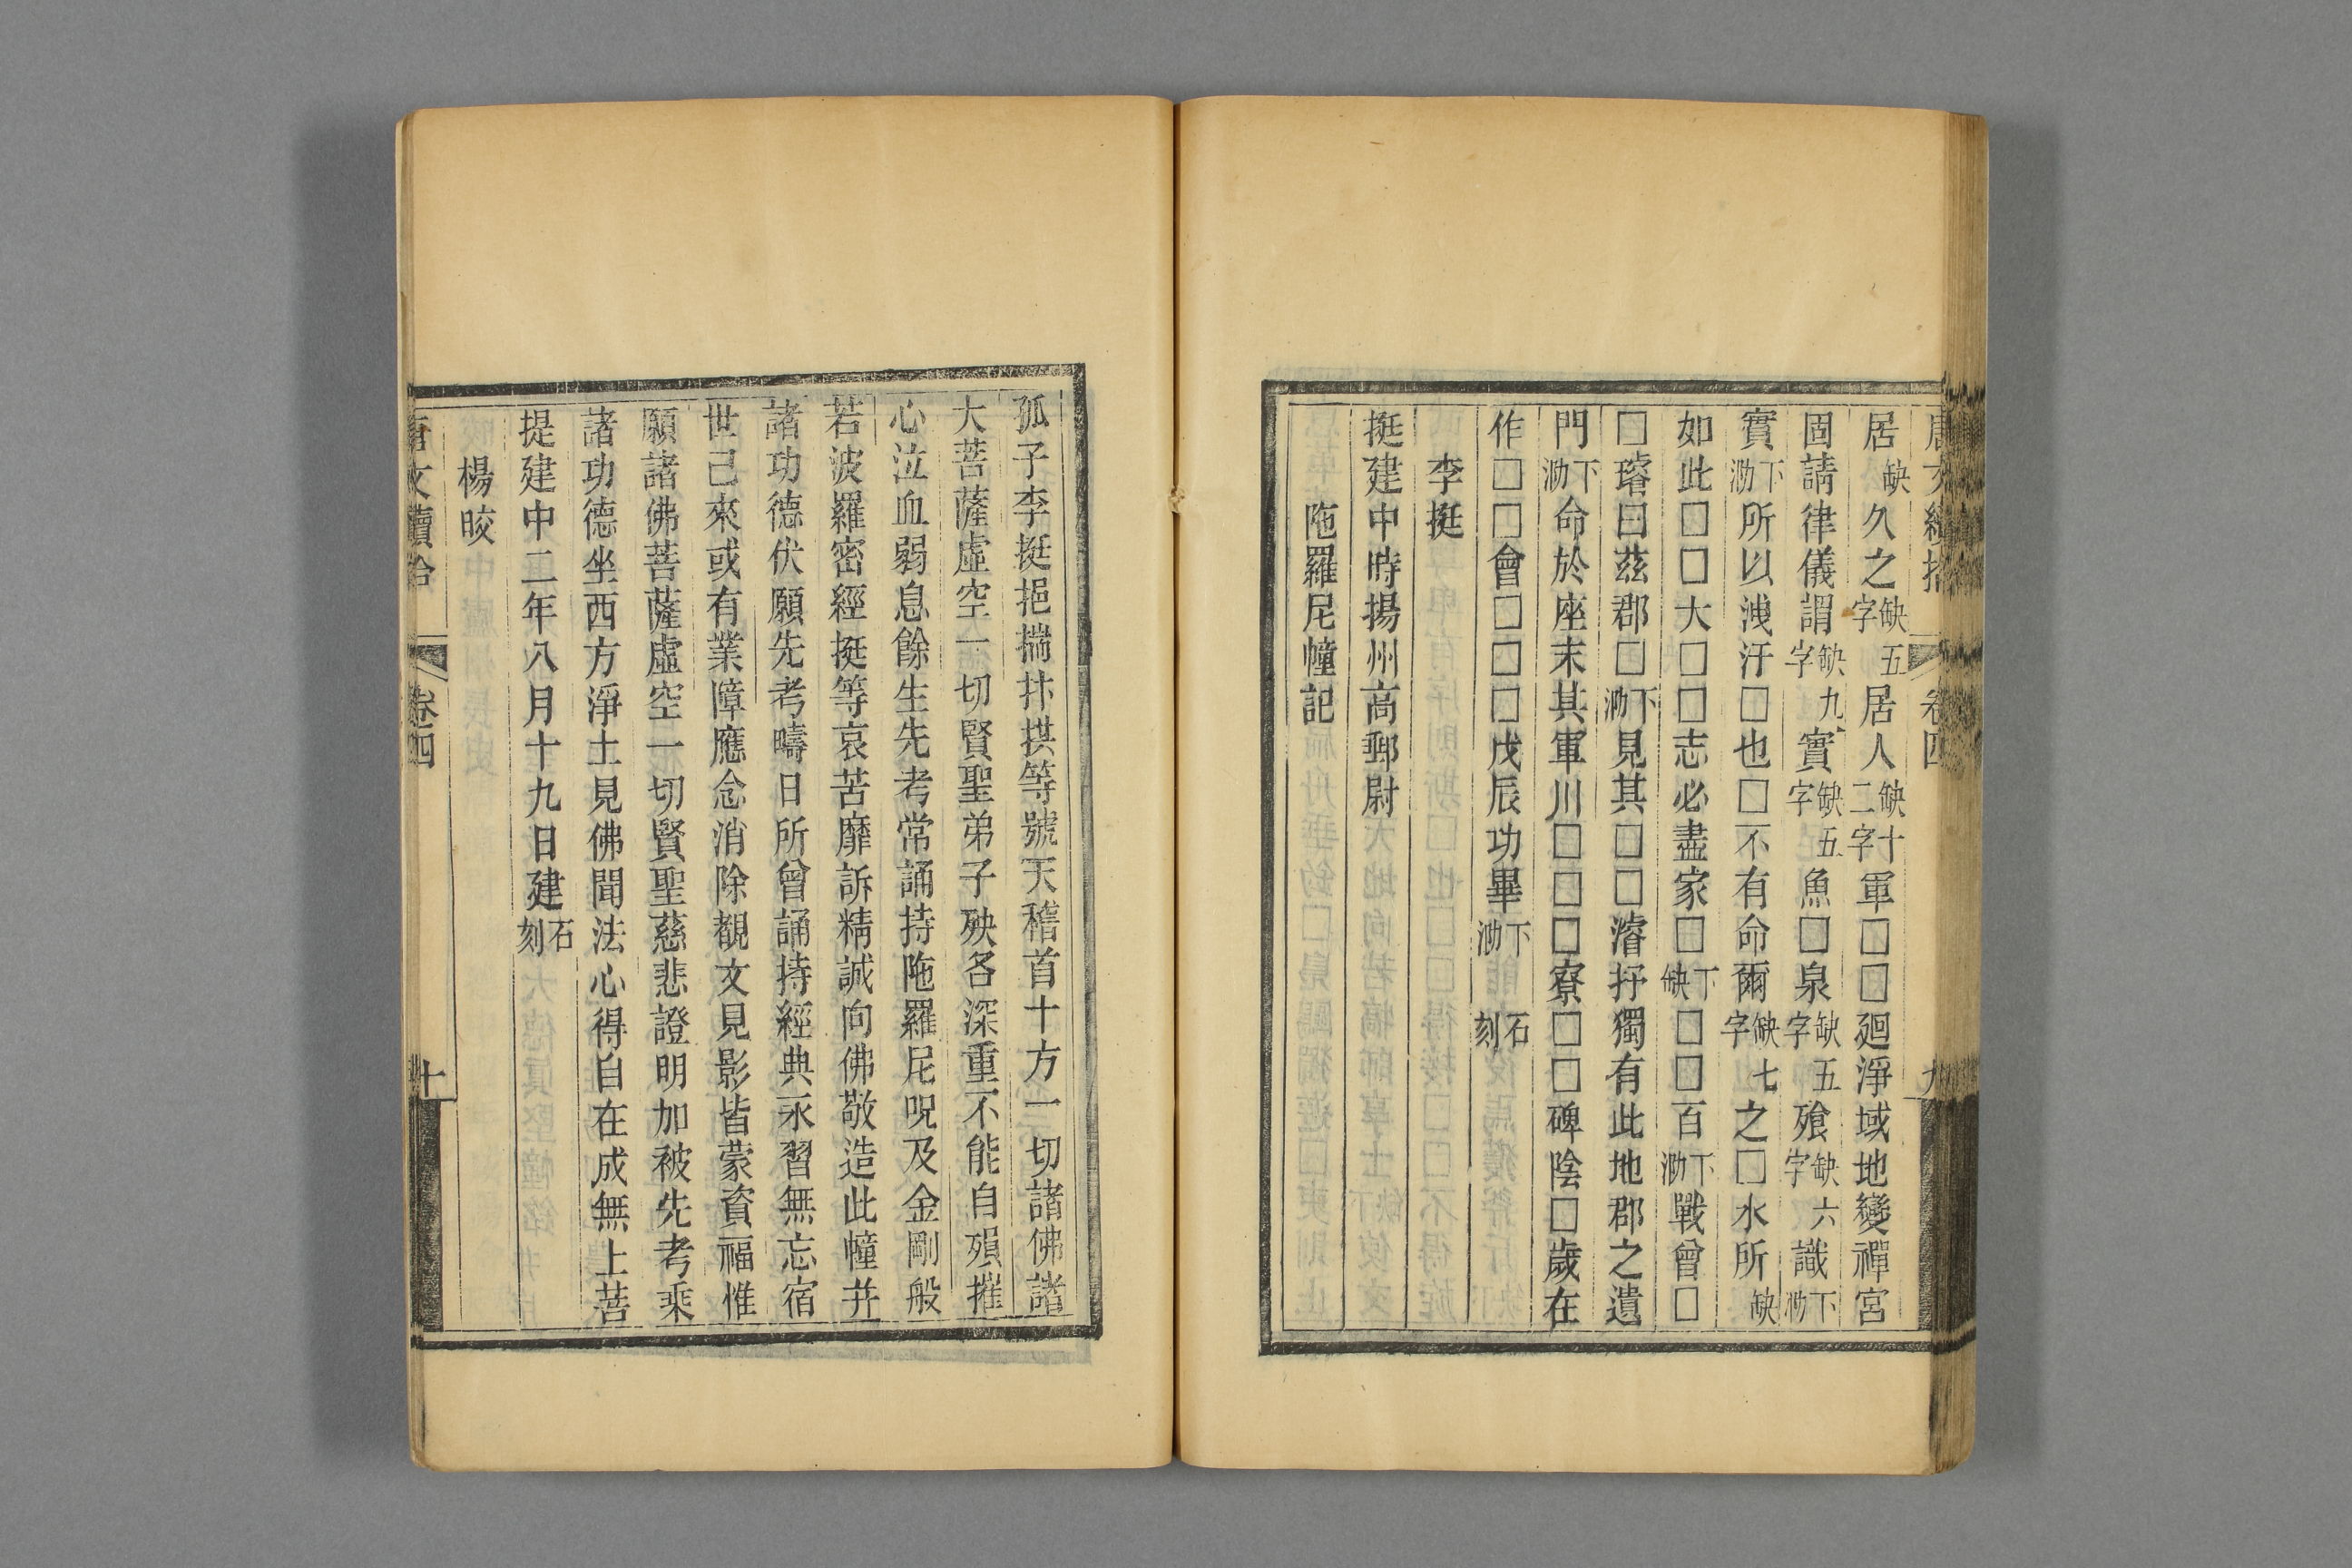 居缺久之缺五字居人缺十二字軍□□廻淨域地變禪宮
固請律儀謂缺九字實缺五字魚□泉缺五字飱缺六字識下泐
實下泐所以洩汙□也□不有命爾缺七字之□水所缺
如此□□大□□志必盡家□下缺□□百下泐戰曾□
□璿曰茲郡□下泐見其□□濬抙獨有此地郡之遺
門下泐命於座末其軍川□□□寮□□碑陰□歲在
作□□會□□□戊辰功畢下泐 石刻
李挺
挺建中時揚州高郵尉
陁羅尼幢記
孤子李挺挹揣抃拱等號天稽首十方一切諸佛諸
大菩薩虛空一切賢聖弟子殃咎深重不能自殞摧
心泣血弱息餘生先考常誦持陁羅尼呪及金剛般
若波羅密經挺等哀苦靡訴精誠向佛敬造此幢幷
諸功德伏願先考疇日所曾誦持經典永習無忘宿
世己來或有業障應念消除覩文見影皆蒙資福惟
願諸佛菩薩虛空一切賢聖慈悲證明加被先考乘
諸功德坐西方淨土見佛聞法心得自在成無上菩
提建中二年八月十九日建石刻
楊晈
唐文續拾 卷四 十